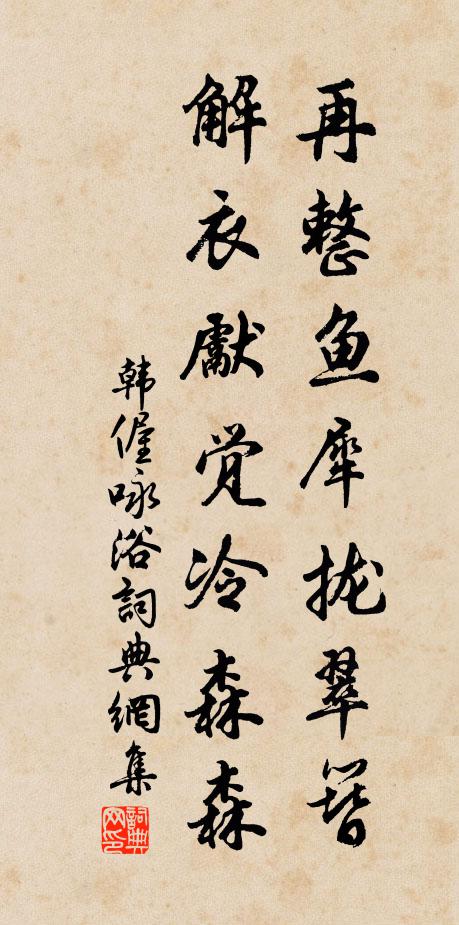 再整鱼犀拢翠簪
解衣献觉冷森森
韩偓咏浴詞典網集
詞典网印